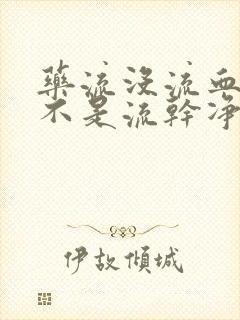 藥流沒流血
不是流幹淨
伊故傾城